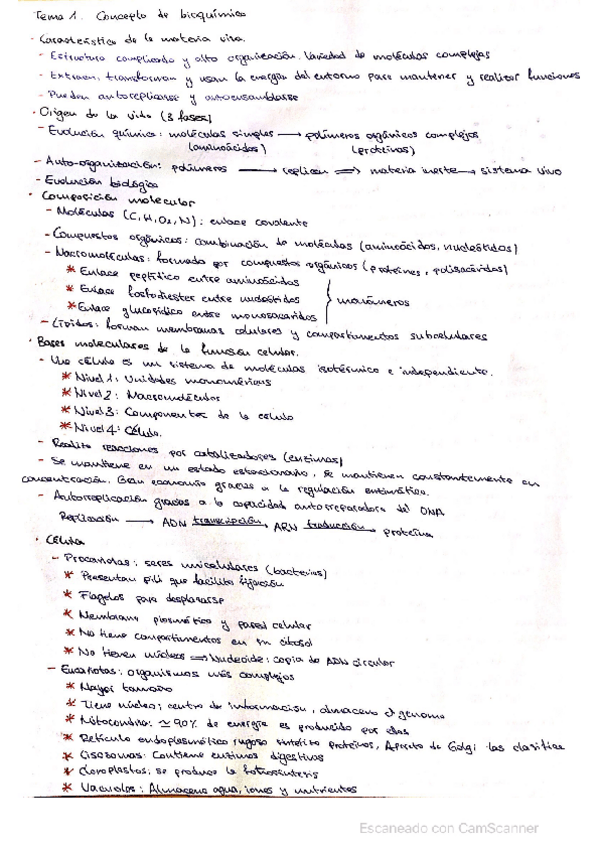 Tema 1. Concepto de bioquímica
· Característica de la materia viva.
- Estructura complicada y alta organización. Variedad de moléculas complejas
- Extraen, transforman y usan la energía del entorno para mantener y realizar funciones
- Pueden autoreplicarse y autoensamblarse
· Origen de la vida (3 fases)
- Evolución química: moléculas simples → polímeros orgánicos complejos
(aminoácidos) (proteínas)
- Auto-organización: polímeros → replican ⇒ materia inerte → sistema vivo
- Evolución biológica
· Composición molecular
- Moléculas (C, H, O₂, N): enlace covalente
- Compuestos orgánicos: combinación de moléculas (aminoácidos, nucleótidos)
- Macromoléculas: formado por compuestos orgánicos (proteínas, polisacáridos)
* Enlace peptídico entre aminoácidos
* Enlace fosfodiester entre nucleótidos } monómeros
* Enlace glucosídico entre monosacáridos
- Lípidos: forman membranas celulares y compartimentos subcelulares
· Bases moleculares de la función celular.
- Una célula es un sistema de moléculas isotérmico e independiente.
* Nivel 1: Unidades monoméricas
* Nivel 2: Macromoléculas
* Nivel 3: Componentes de la célula
* Nivel 4: Célula.
- Realiza reacciones por catalizadores (enzimas)
- Se mantiene en un estado estacionario, se mantienen constantemente en
concentración. Gran economía gracias a la regulación enzimática.
- Autorreplicación gracias a la capacidad autoreparadora del DNA
Replicación → ADN transcripción → ARN traducción → proteína
· Célula
- Procariotas: seres unicelulares (bacterias)
* Presentan pili que facilita fijación
* Flagelos para desplazarse
* Membrana plasmática y pared celular
* No tiene compartimentos en su citosol
* No tienen núcleos ⇒ Nucleoide: copia de ADN circular
- Eucariotas: organismos más complejos
* Mayor tamaño
* Tiene núcleo; centro de información, almacena el genoma
* Mitocondria: ≃ 90% de energía es producido por ellas
* Retículo endoplasmático rugoso sintetiza proteínas, Aparato de Golgi las clasifica
* Lisosomas: Contiene enzimas digestivas
* Cloroplastos: se produce la fotosíntesis
* Vacuolas: Almacena agua, iones y nutrientes
Escaneado con CamScanner